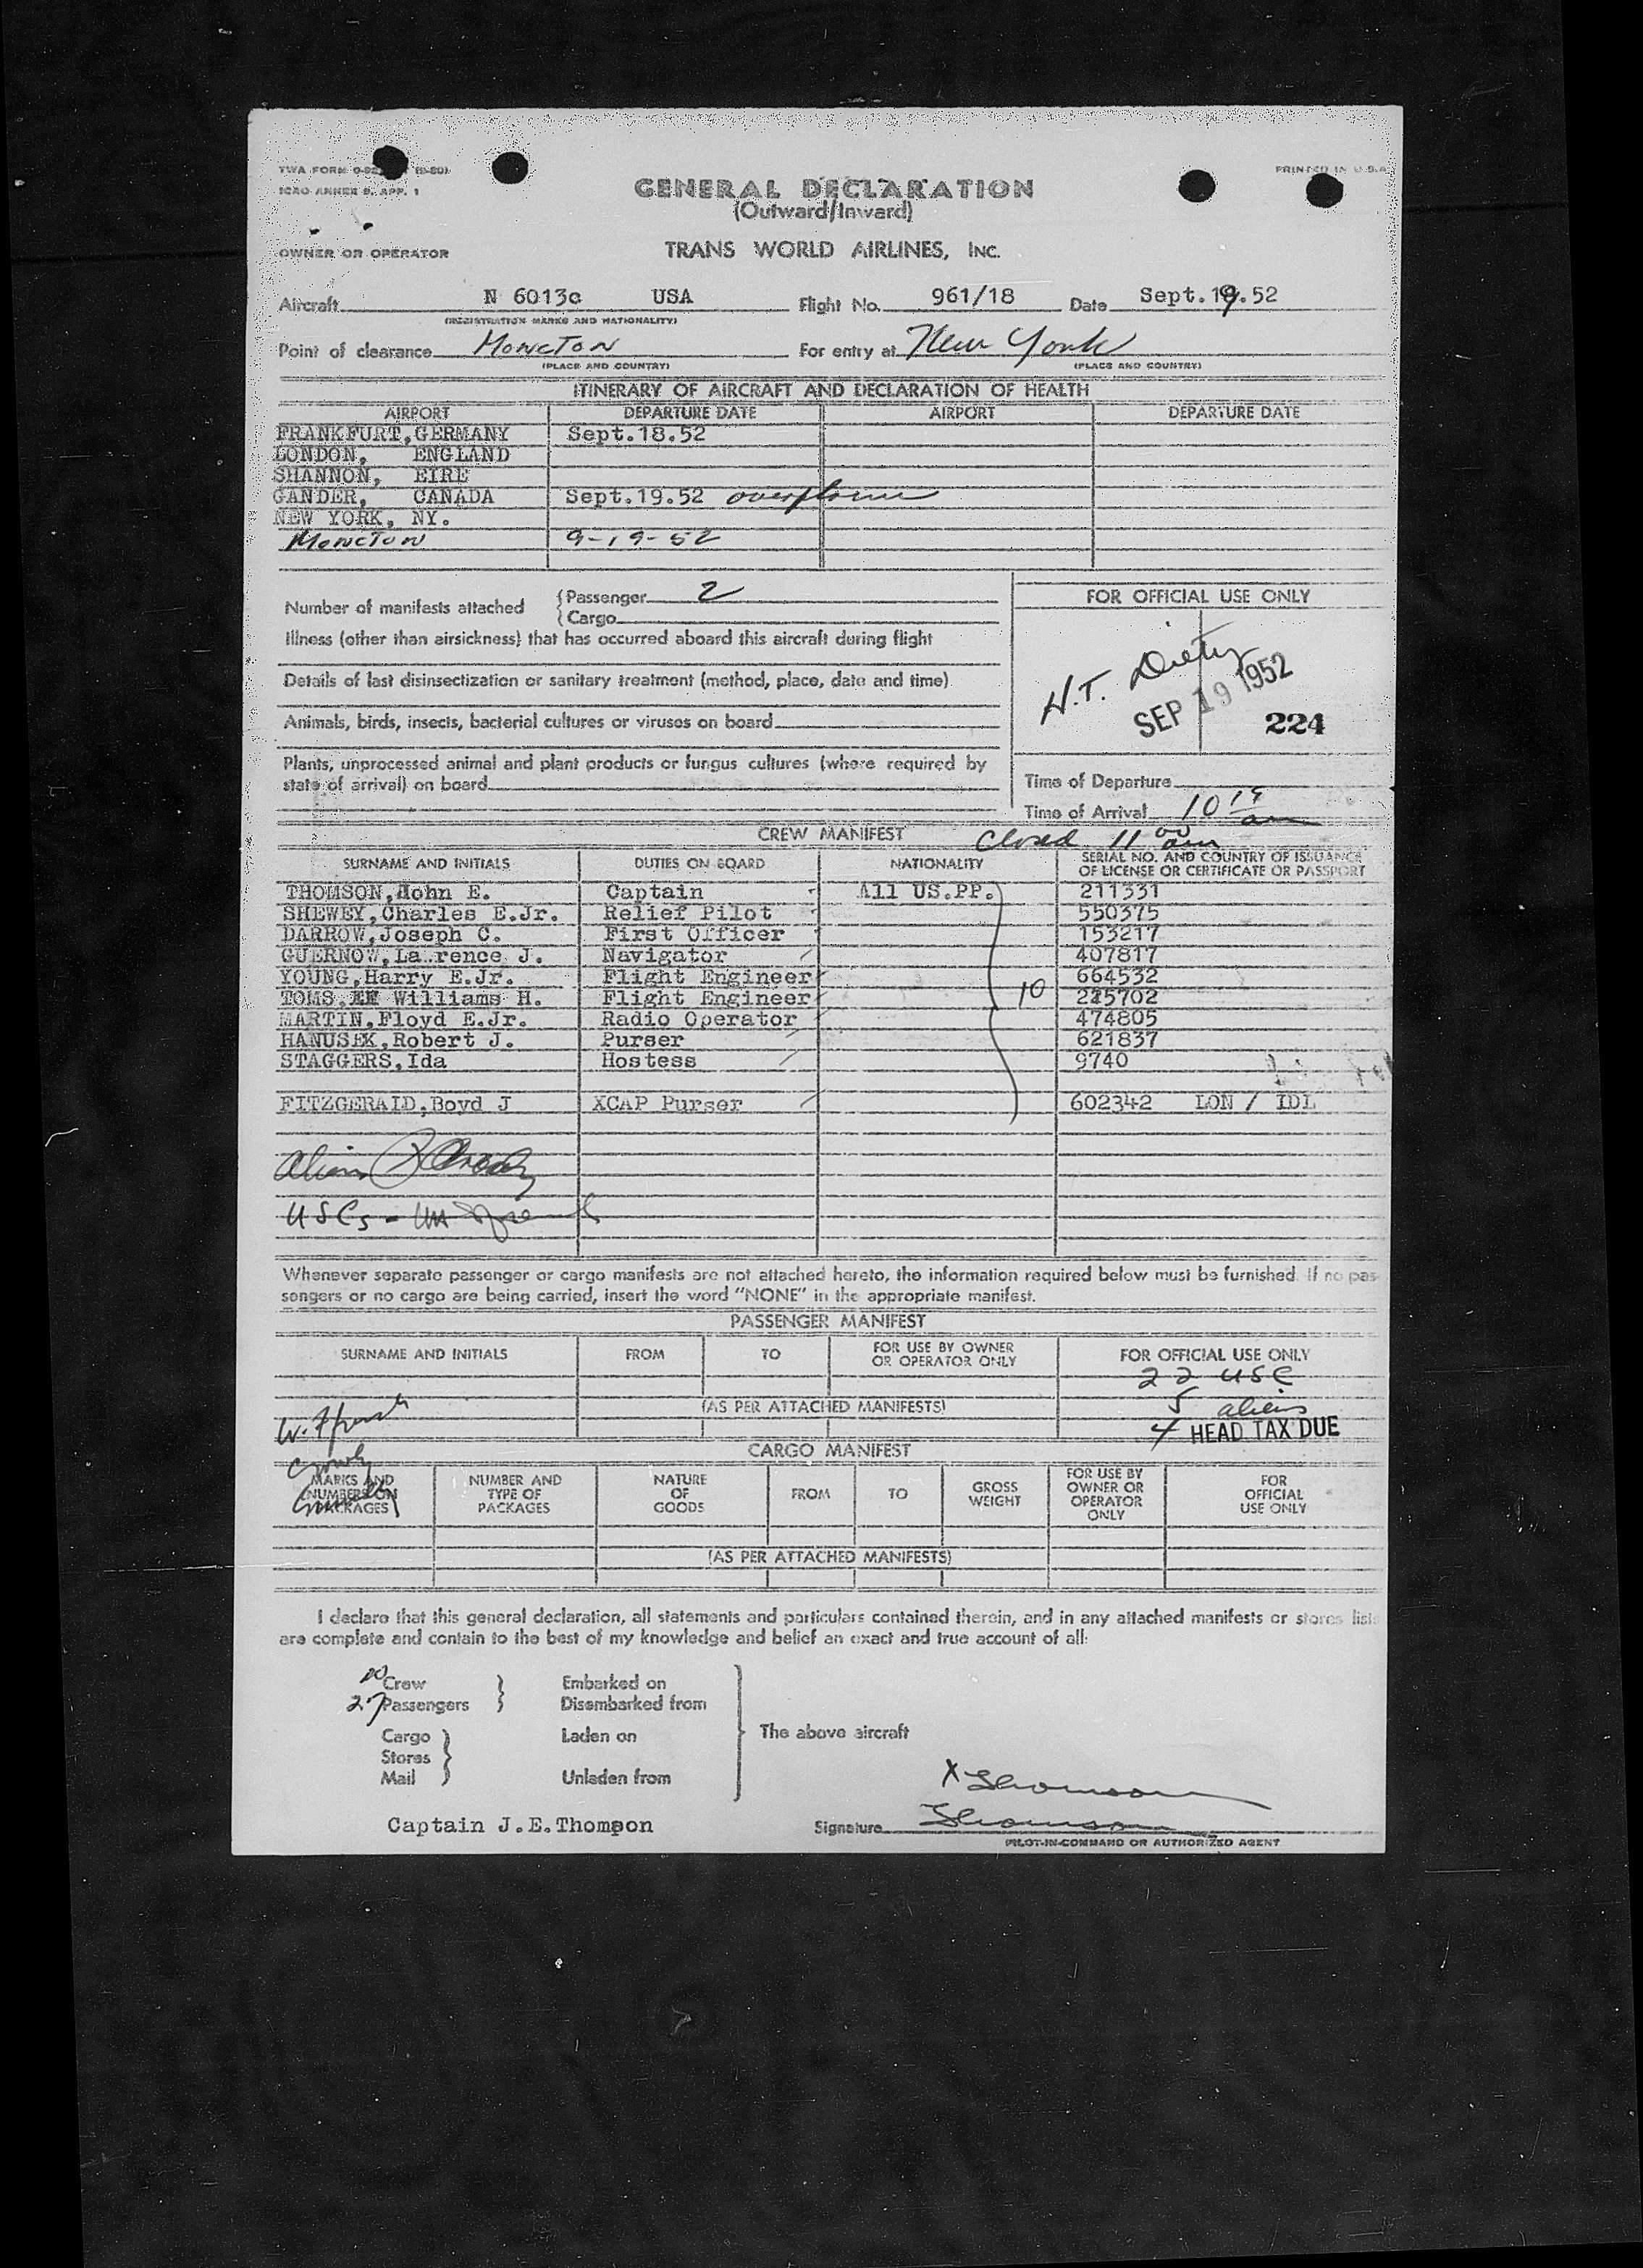 PRINTED IN U.S.A.
TWA FORM
ICAO ANNEX 9, APP. 1
GENERAL DECLARATION
(Outward/Inward)
OWNER OR OPERATOR TRANS WORLD AIRLINES, INC.
Aircraft N 6013c USA Flight No. 961/18 Date Sept.19.52
(REGISTRATION MARKS AND NATIONALITY)
Point of clearance MONCTON For entry at New York
(PLACE AND COUNTRY) (PLACE AND COUNTRY)
ITINERARY OF AIRCRAFT AND DECLARATION OF HEALTH
AIRPORT DEPARTURE DATE AIRPORT DEPARTURE DATE
FRANKFURT,GERMANY Sept.18.52
LONDON, ENGLAND
SHANNON, EIRE
GANDER, CANADA Sept.19.52 overflown
NEW YORK, NY.
MONCTON 9-19-52
Number of manifests attached
Passenger 2
Cargo
Illness (other than airsickness) that has occurred aboard this aircraft during flight
Details of last disinsectization or sanitary treatment (method, place, date and time)
Animals, birds, insects, bacterial cultures or viruses on board
Plants, unprocessed animal and plant products or fungus cultures (where required by
state of arrival) on board
FOR OFFICIAL USE ONLY
H.T.
SEP 19 1952
224
Time of Departure
Time of Arrival 10 19 am
CREW MANIFEST Closed 11 00 am
SURNAME AND INITIALS DUTIES ON BOARD NATIONALITY SERIAL NO. AND COUNTRY OF ISSUANCE
OF LICENSE OR CERTIFICATE OR PASSPORT
THOMSON,John E. Captain All US.PP. 211331
SHEWEY,Charles E.Jr. Relief Pilot 550375
DARROW,Joseph C. First Officer 153217
GUERNOW,La rence J. Navigator 407817
YOUNG,Harry E.Jr. Flight Engineer 664532
TOMS, Williams H. Flight Engineer 10 225702
MARTIN,Floyd E.Jr. Radio Operator 474805
HANUSEK,Robert J. Purser 621837
STAGGERS,Ida Hostess 9740
FITZGERALD,Boyd J XCAP Purser 602342 LON / IDL
Aliens
USCs -
Whenever separate passenger or cargo manifests are not attached hereto, the information required below must be furnished. If no pas-
sengers or no cargo are being carried, insert the word "NONE" in the appropriate manifest.
PASSENGER MANIFEST
SURNAME AND INITIALS FROM TO FOR USE BY OWNER
OR OPERATOR ONLY FOR OFFICIAL USE ONLY
22 USC
5 aliens
(AS PER ATTACHED MANIFESTS)
4 HEAD TAX DUE
CARGO MANIFEST
MARKS AND
NUMBERS ON
PACKAGES
NUMBER AND
TYPE OF
PACKAGES
NATURE
OF
GOODS
FROM TO
GROSS
WEIGHT
FOR USE BY
OWNER OR
OPERATOR
ONLY
FOR
OFFICIAL
USE ONLY
(AS PER ATTACHED MANIFESTS)
I declare that this general declaration, all statements and particulars contained therein, and in any attached manifests or stores lists
are complete and contain to the best of my knowledge and belief an exact and true account of all:
10 Crew Embarked on
27 Passengers Disembarked from
Cargo Laden on The above aircraft
Stores
Mail Unladen from
X Thomson
Captain J.E.Thompson Signature Thomson
PILOT-IN-COMMAND OR AUTHORIZED AGENT